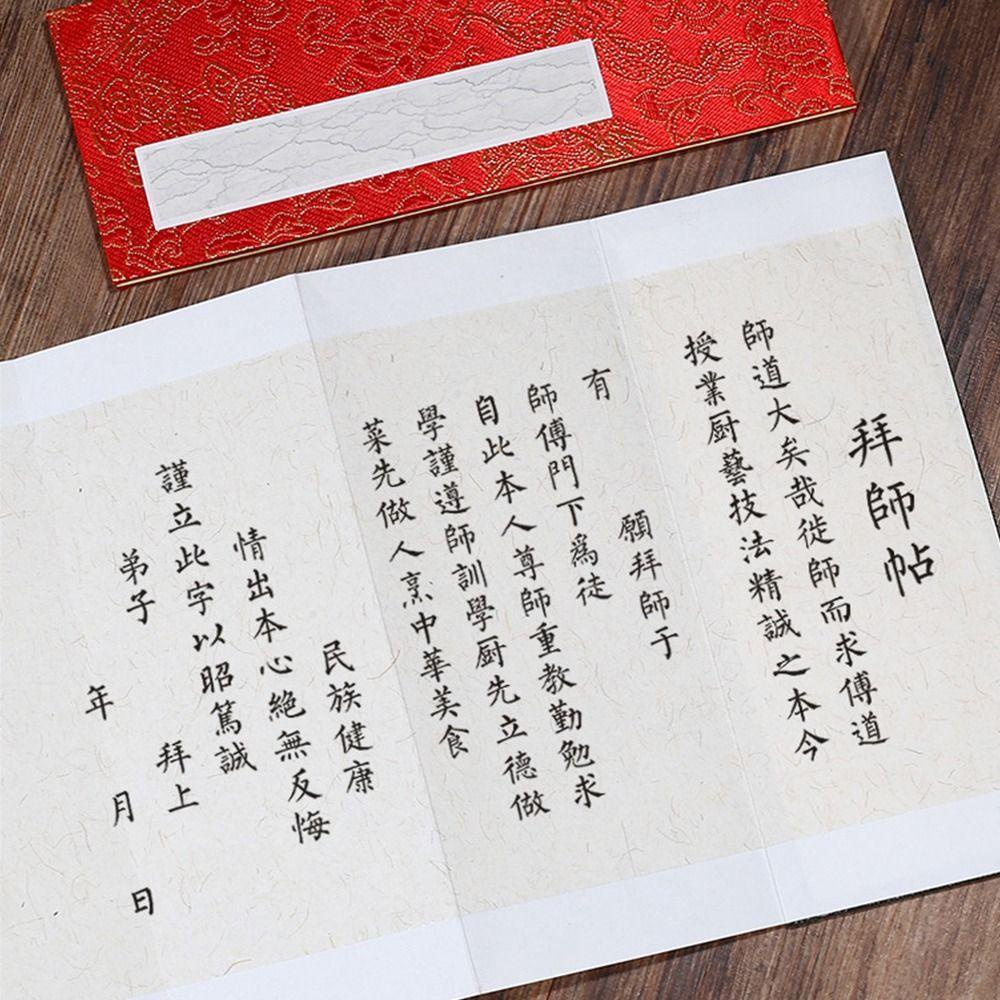 拜師帖
師道大矣哉徙師而求傅道
授業厨藝技法精誠之本今
有 願拜師于
師傅門下爲徒
自此本人尊師重教勤勉求
學謹遵師訓學厨先立德做
菜先做人烹中華美食
民族健康
情出本心絕無反悔
謹立此字以昭篤誠
弟子 拜上
年 月 日